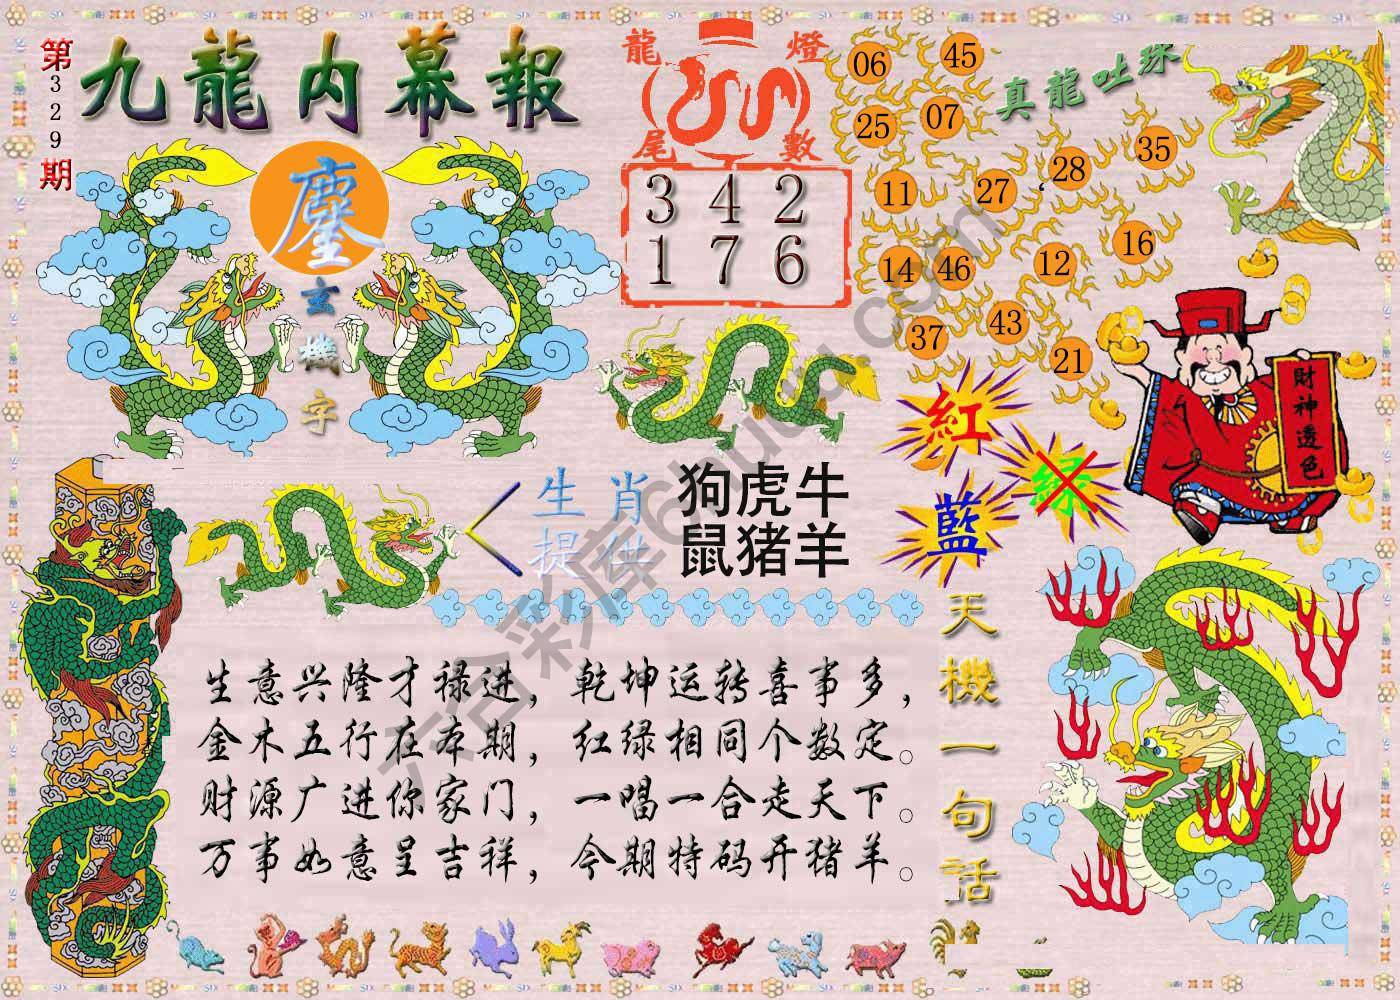 第329期
九龍内幕報
龍燈尾數
3 4 2
1 7 6
06
45
25
07
真龍吐珠
11
27
28
35
14
46
12
16
37
43
21
玄機字
財神透色
紅
綠
藍
生肖提供
狗虎牛
鼠猪羊
天機一句話
生意兴隆才禄进，乾坤运转喜事多，
金木五行在本期，红绿相同个数定。
财源广进你家门，一唱一合走天下。
万事如意呈吉祥，今期特码开猪羊。
六合彩库6huku.com